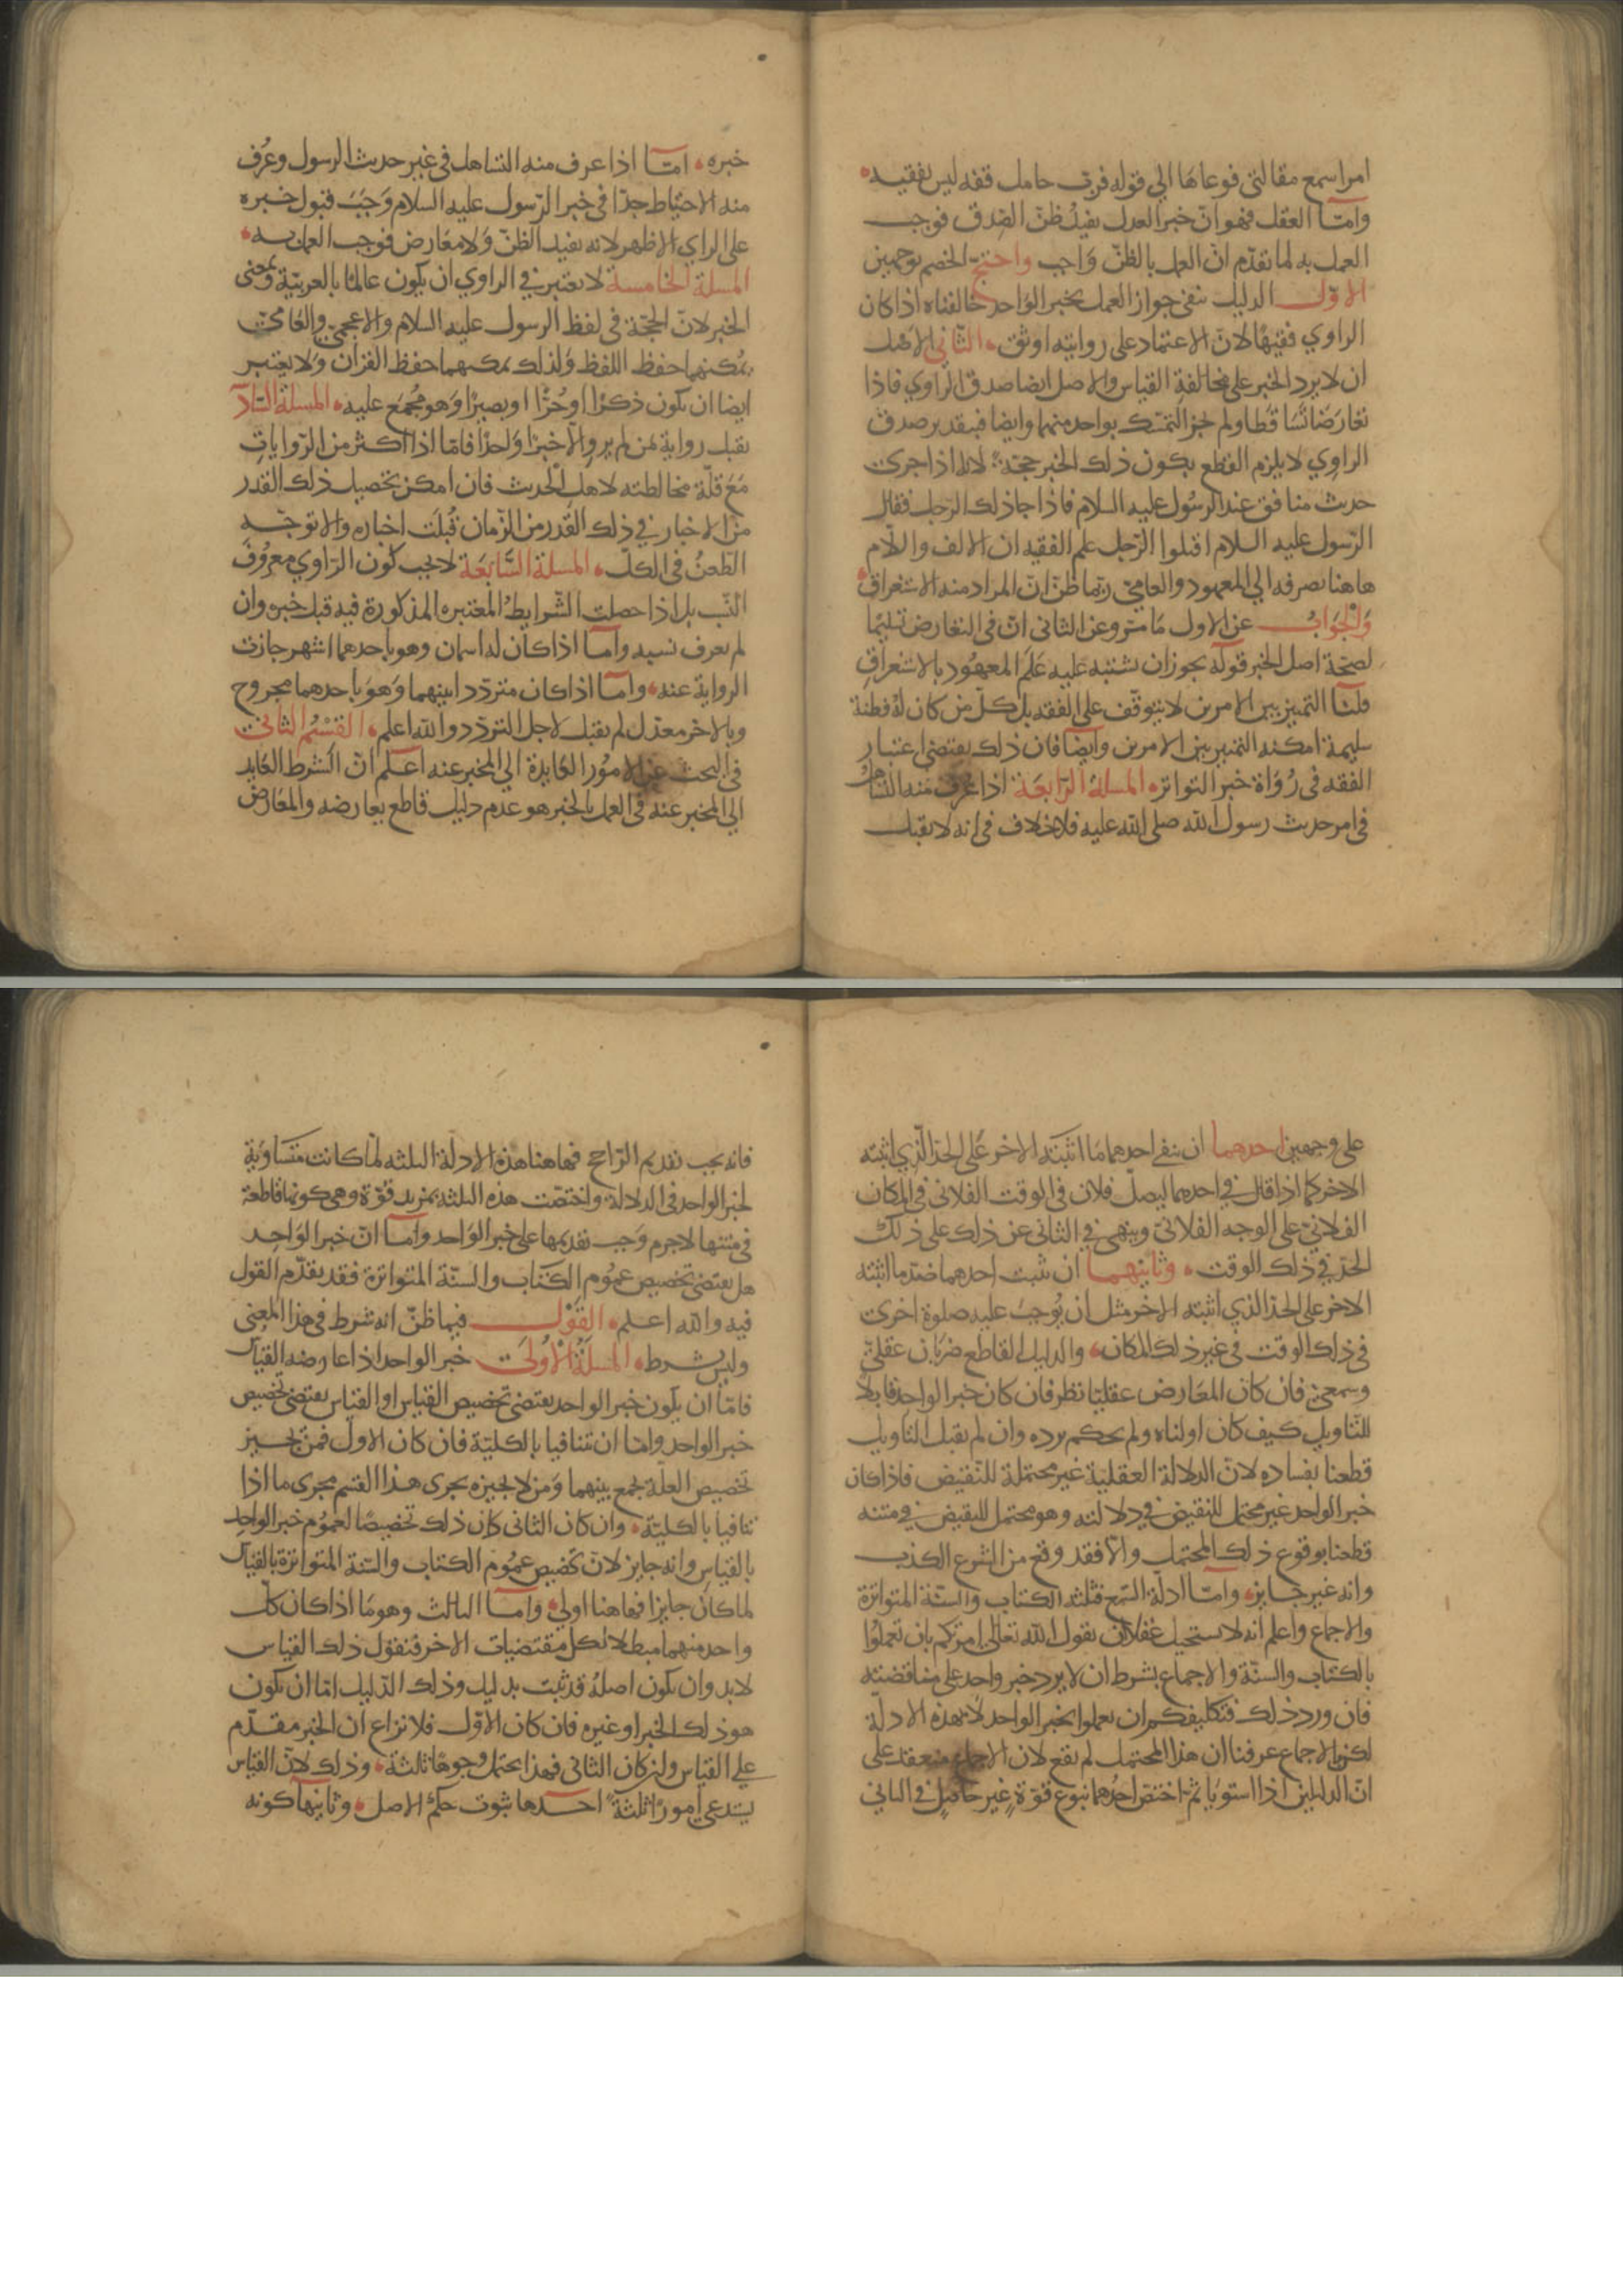 امرا سمع مقالتي فوعاها الي قوله فرب حامل فقه ليس بفقيه
وامّا العقل فهو انّ خبر العدل يفيد ظنّ الصدق فوجب
العمل به لما تقدّم انّ العمل بالظنّ واجب واحتجّ الخصم بوجهين
الاوّل الدليل ينفي جواز العمل بخبر الواحد خالفناه اذا كان
الراوي فقيهًا لانّ الاعتماد على روايته اوثق الثاني الاصل
ان لا يرد الخبر على مخالفة القياس والاصل ايضا صدق الراوي فاذا
تعارضا تساقطا ولم يجز التمسّك بواحد منهما وايضا فبتقدير صدق
الراوي لا يلزم القطع بكون ذلك الخبر حجّة لانه اذا جرى
حديث منافق عند الرسول عليه السلام فاذا جا ذلك الرجل فقال
الرسول عليه السلام اقتلوا الرّجل علم الفقيه ان الالف واللام
هاهنا تصرفه الي المعهود والعامي ربّما ظنّ انّ المراد منه الاستغراق
والجواب عن الاول ما مرّ وعن الثاني انّ في التعارض تسليمًا
لصحّة اصل الخبر قوله يجوز ان يشتبه عليه علم المعهود بالاستغراق
قلنا التمييز بين الامرين لا يتوقّف على الفقه بل كلّ من كان له فطنة
سليمة امكنه التمييز بين الامرين وايضا فان ذلك يقتضي اعتبار
الفقه في رواة خبر التواتر المسلة الرّابعة اذا عرف منه التساهل
في امر حديث رسول الله صلى الله عليه فلا خلاف في انه لا يقبل
خبره امّا اذا عرف منه التساهل في غير حديث الرسول وعرف
منه الاحتياط جدّا في خبر الرّسول عليه السلام وجب قبول خبره
على الراي الاظهر لانه يفيد الظنّ ولا معارض فوجب العمل به
المسلة الخامسة لا يعتبر في الراوي ان يكون عالمًا بالعربيّة وبمعنى
الخبر لانّ الحجّة في لفظ الرسول عليه السلام والاعجمي والعامي
يمكنهما حفظ اللفظ ولذلك يمكنهما حفظ القران ولا يعتبر
ايضا ان يكون ذكرًا او حرًّا او بصيرًا وهو مجمع عليه المسلة السّاد
يقبل رواية من لم يرو الّا خبرًا واحدًا فامّا اذا اكثر من الرّوايات
مع قلّة مخالطته لاهل الحديث فان امكن تحصيل ذلك القدر
من الاخبار في ذلك القدر من الزمان قبلت اخباره والا توجّه
الطعن في الكلّ المسلة السّابعة لا يجب كون الرّاوي معروف
النسب بل اذا حصلت الشّرايط المعتبره المذكورة فيه قبل خبره وان
لم يعرف نسبه وامّا اذا كان له اسمان وهو باحدهما اشهر جازت
الرواية عنه وامّا اذا كان متردّدا بينهما وهو باحدهما مجروح
وبالاخر معدّل لم يقبل لاجل التردّد والله اعلم القسم الثاني
في البحث عن الامور العايدة الي المخبر عنه اعلم انّ الشرط العايد
الي المخبر عنه في العمل بالخبر هو عدم دليل قاطع يعارضه والمعارض
على وجهين احدهما ان ينفي احدهما ما اثبته الاخر على الحدّ الّذي اثبته
الاخر كما اذا قال في احدهما ليصلّ فلان في الوقت الفلاني في المكان
الفلانيّ على الوجه الفلانيّ وينهى في الثاني عن ذلك على ذلك
الحدّ في ذلك الوقت وثانيهما ان يثبت احدهما ضدّ ما اثبته
الاخر على الحدّ الذي اثبته الاخر مثل ان يوجب عليه صلوة اخرى
في ذلك الوقت في غير ذلك المكان والدليل القاطع ضربان عقليّ
وسمعيّ فان كان المعارض عقليّا نظر فان كان خبر الواحد قابلا
للتاويل كيف كان اولناه ولم نحكم برده وان لم يقبل التاويل
قطعنا بفساده لانّ الدلالة العقلية غير محتملة للنّقيض فاذا كان
خبر الواحد غير محتمل للنقيض في دلالته وهو محتمل للنقيض في متنه
قطعنا بوقوع ذلك المحتمل والّا فقد وقع من الشرع الكذب
وانه غير جايز وامّا ادلّة السّمع فثلثه الكتاب والسنّة المتواترة
والاجماع واعلم انه لا يستحيل عقلا ان يقول الله تعالى امرتكم بان تعملوا
بالكتاب والسنّة والاجماع بشرط ان لا يرد خبر واحد على مناقضته
فان ورد ذلك فتكليفكم ان تعملوا بخبر الواحد لا بهذه الادلّة
لكن بالاجماع عرفنا ان هذا المحتمل لم يقع لان الاجماع منعقد على
انّ الدليلين اذا استويا ثم اختصّ احدهما بنوع قوّة غير حاصل في الثاني
فانه يجب تقديم الرّاجح فهاهنا هذه الادلّة الثلثه لمّا كانت متساوية
لخبر الواحد في الدلالة واختصّت هذه الثلثة بمزيد قوّة وهي كونها قاطعة
في متنها لا جرم وجب تقديمها على خبر الواحد وامّا انّ خبر الواحد
هل يقتضي تخصيص عموم الكتاب والسنّة المتواترة فقد تقدّم القول
فيه والله اعلم القول فيما ظنّ انه شرط في هذا المعنى
وليس بشرط المسلة الاولى خبر الواحد اذا عارضه القياس
فامّا ان يكون خبر الواحد يقتضي تخصيص القياس او القياس يقتضي تخصيص
خبر الواحد وامّا ان يتنافيا بالكليّة فان كان الاول فمن يجيز
تخصيص العلّة يجمع بينهما ومن لا يجيزه يجرى هذا القسم مجرى ما اذا
تنافيا بالكليّة وان كان الثاني كان ذلك تخصيصًا لعموم خبر الواحد
بالقياس وانه جايز لانّ تخصيص عموم الكتاب والسّنة المتواترة بالقياس
لما كان جايزا فهاهنا اولى وامّا الثالث وهو ما اذا كان كلّ
واحد منهما مبطلا لكل مقتضيات الاخر فنقول ذلك القياس
لا بد وان يكون اصله قد ثبت بدليل وذلك الدّليل امّا ان يكون
هو ذلك الخبر او غيره فان كان الاوّل فلا نزاع ان الخبر مقدّم
على القياس وان كان الثاني فهذا يحتمل وجوهًا ثلثة وذلك لانّ القياس
يستدعي امورًا ثلثة احدها ثبوت حكم الاصل وثانيها كونه